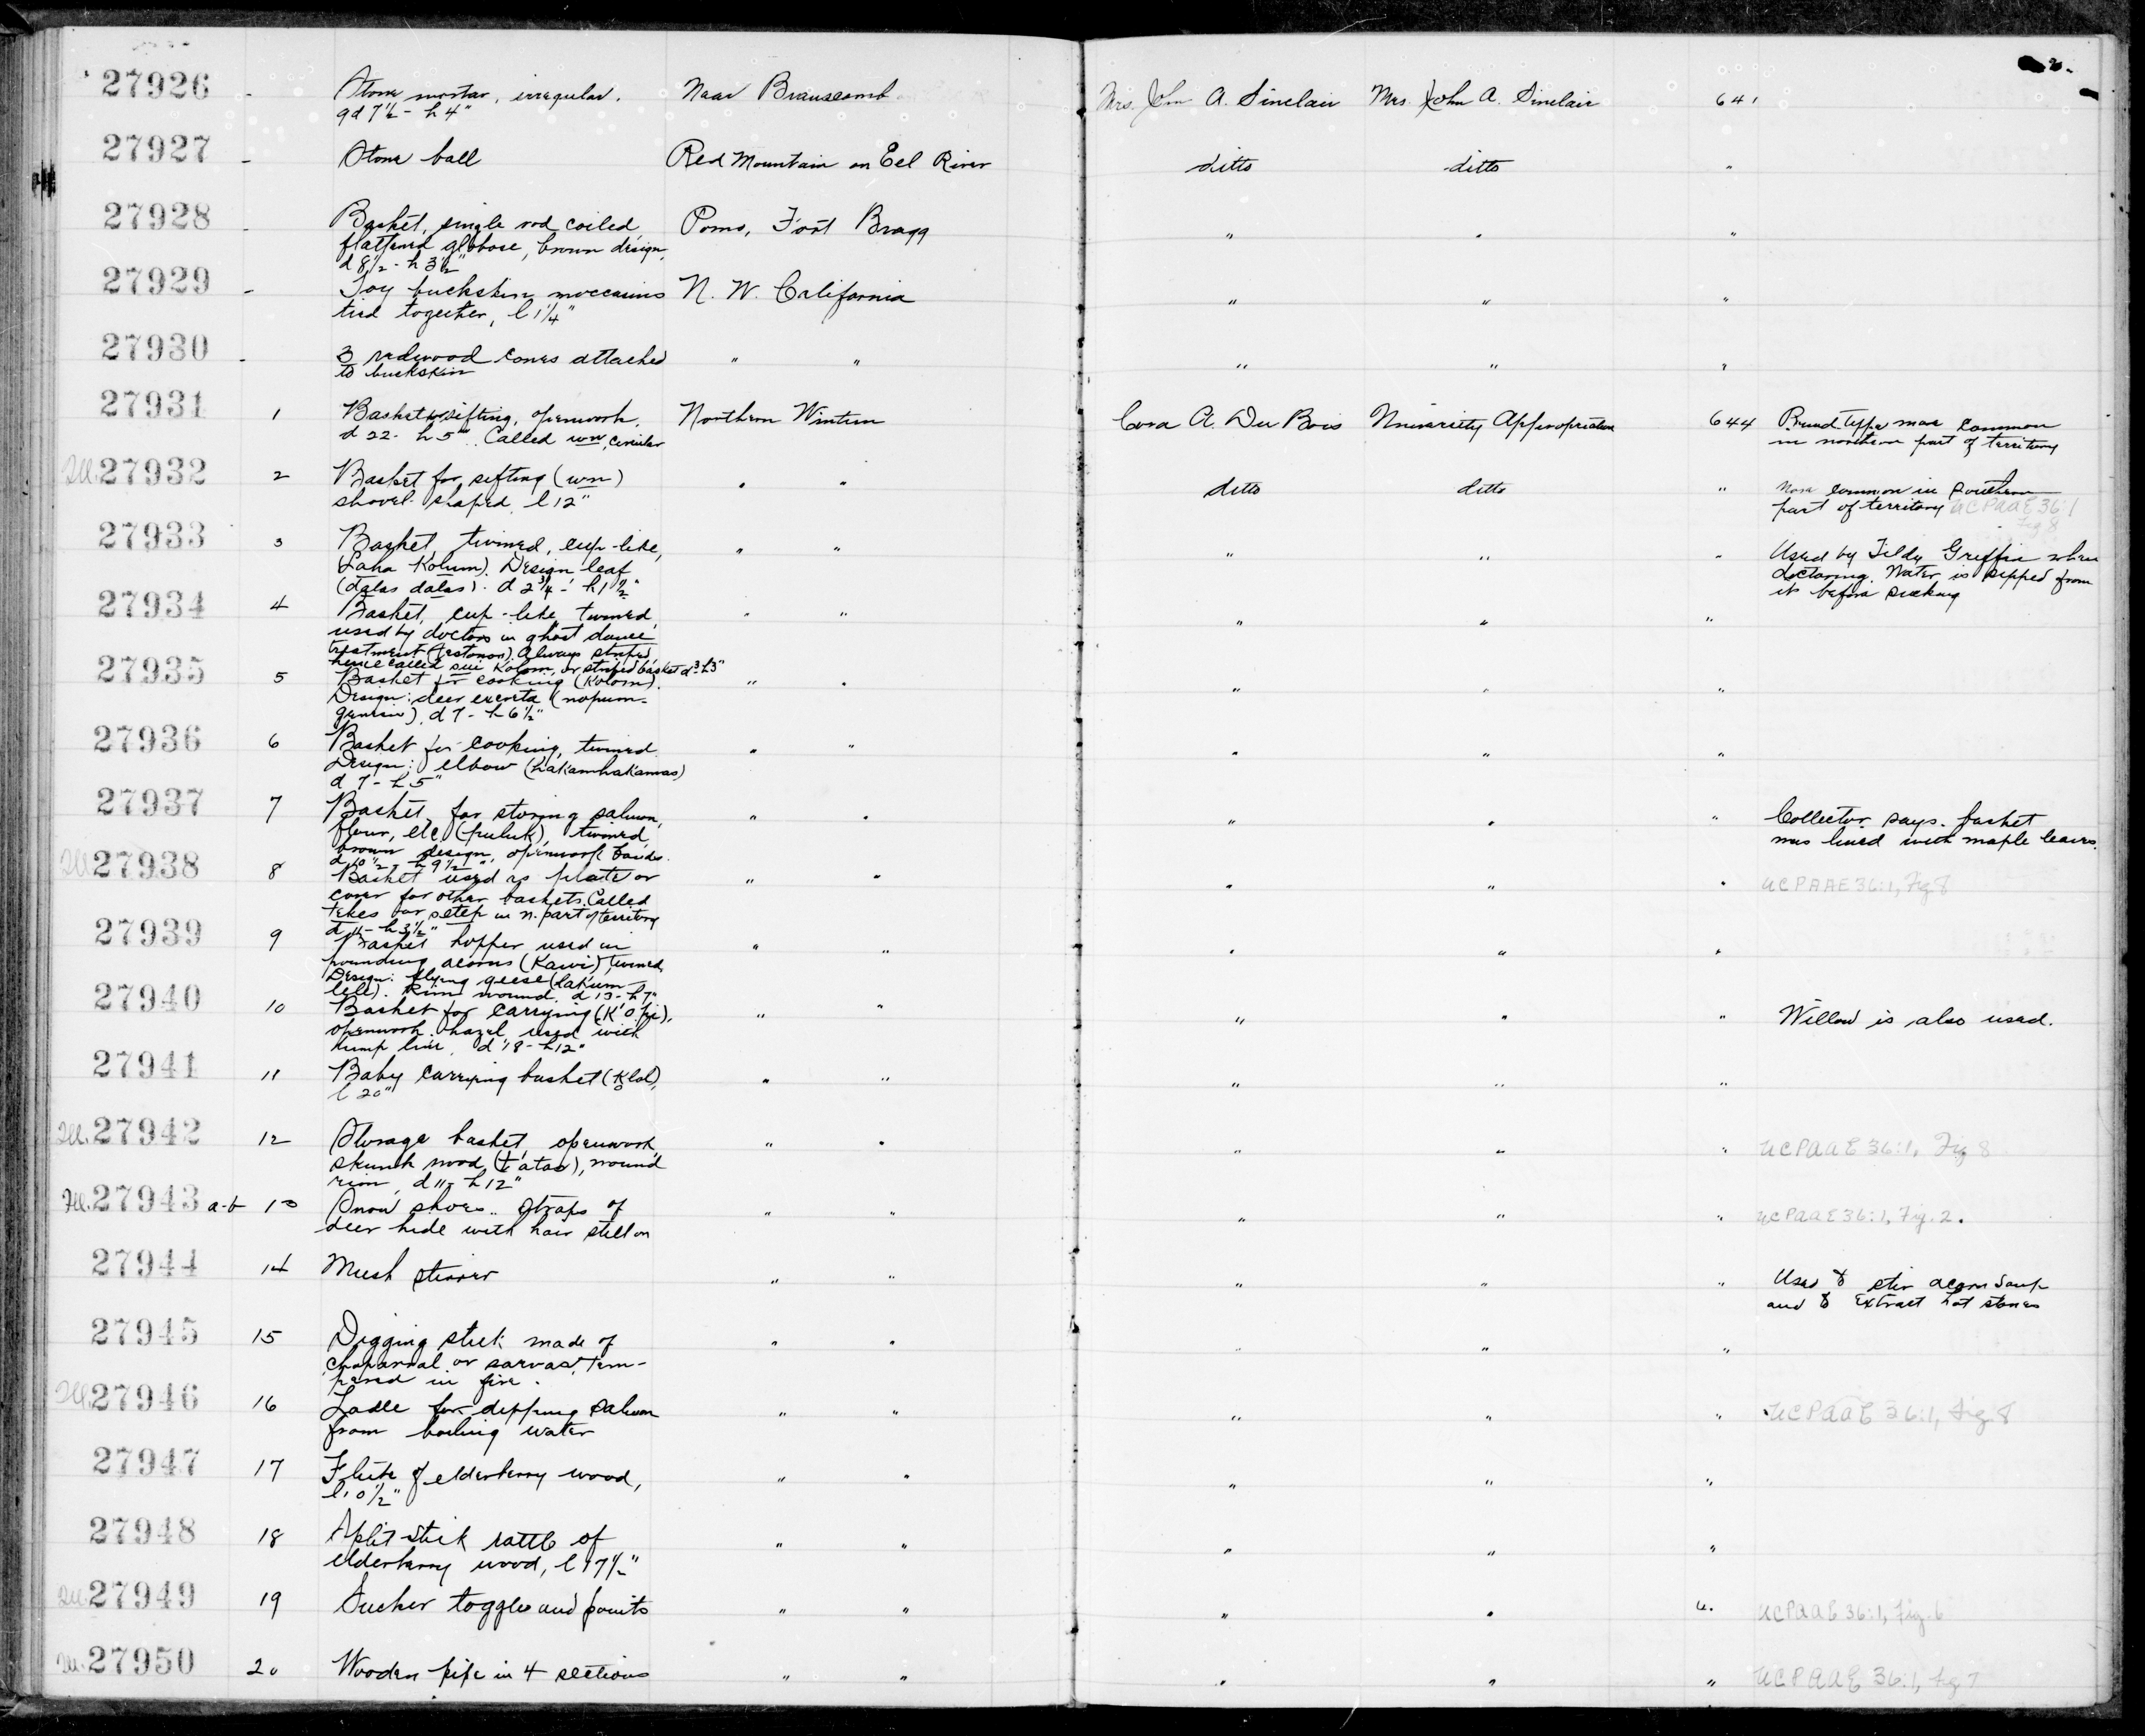 27926 - Stone mortar, irregular. Near Branscomb Mrs. John A. Sinclair Mrs. John A. Sinclair 641
gd 7½ - h 4"
27927 - Stone ball Red Mountain on Eel River ditto ditto "
27928 - Basket, single rod coiled, Pomo, Fort Bragg " " "
flattened globose, brown design,
d 8½ - h 3½"
27929 - Toy buckskin moccasins N. W. California " " "
tied together, l 1¼"
27930 - 3 redwood cones attached " " " " "
to buckskin
27931 1 Basket for sifting, openwork, Northern Wintun Cora A. Du Bois University Appropriation 644 Round type more common
d 22 - h 5". Called wm, circular in northern part of territory
Ill. 27932 2 Basket for sifting (wm) " " ditto ditto " More common in southern
shovel-shaped, l 12" part of territory UCPAAE 36:1
Fig 8
27933 3 Basket, twined, cup-like, " " " " " Used by Tildy Griffin when
(Laha Kolum). Design leaf doctoring. Water is sipped from
(dalas dalas). d 2¾ - h 1½" it before sucking
27934 4 Basket, cup-like, twined, " " " " "
used by doctors in ghost dance
treatment. Always striped,
hence called sui Kolom, or striped basket d 3 - h 3"
27935 5 Basket for cooking (Kolom). " " " " "
Design: deer excreta (nopum-
), d 7 - h 6½"
27936 6 Basket for cooking, twined. " " " " "
Design: elbow (hakamhakamas)
d 7 - h 5"
27937 7 Basket, for storing salmon, " " " " " Collector says basket
flour, etc. (puluk), twined, was lined with maple leaves.
brown design, openwork bands.
d 10½ - h 9½"
Ill. 27938 8 Basket used as plate or " " " " " UCPAAE 36:1, Fig 8
cover for other baskets. Called
tekes or setep in n. part of territory
h 3½"
27939 9 Basket hopper, used in " " " " "
pounding acorns (Kawi), twined.
Design: flying geese (lakum
lele). Rim wound. d 13 - h 7"
27940 10 Basket for carrying " " " " " Willow is also used.
openwork. hazel, used with
tump line, d 18 - h 12"
27941 11 Baby carrying basket (Klol), " " " " "
l 20"
Ill. 27942 12 Storage basket, openwork, " " " " " UCPAAE 36:1, Fig 8
skunk wood, (t'atas), wound
rim, d 11 - h 12"
Ill. 27943 a-b 13 Snow shoes. Straps of " " " " " UCPAAE 36:1, Fig. 2.
deer hide with hair still on
27944 14 Mush stirrer " " " " " Used to stir acorn soup
and to extract hot stones
27945 15 Digging stick made of " " " " "
chaparral or sarvas, tem-
pered in fire.
Ill. 27946 16 Ladle for dipping salmon " " " " " UCPAAE 36:1, Fig. 8
from boiling water
27947 17 Flute of elderberry wood, " " " " "
l 10½"
27948 18 Split-stick rattle of " " " " "
elderberry wood, l 17½"
Ill. 27949 19 Sucker toggles and points " " " " " UCPAAE 36:1, Fig. 6
Ill. 27950 20 Wooden pipe in 4 sections " " " " " UCPAAE 36:1, Fig 7